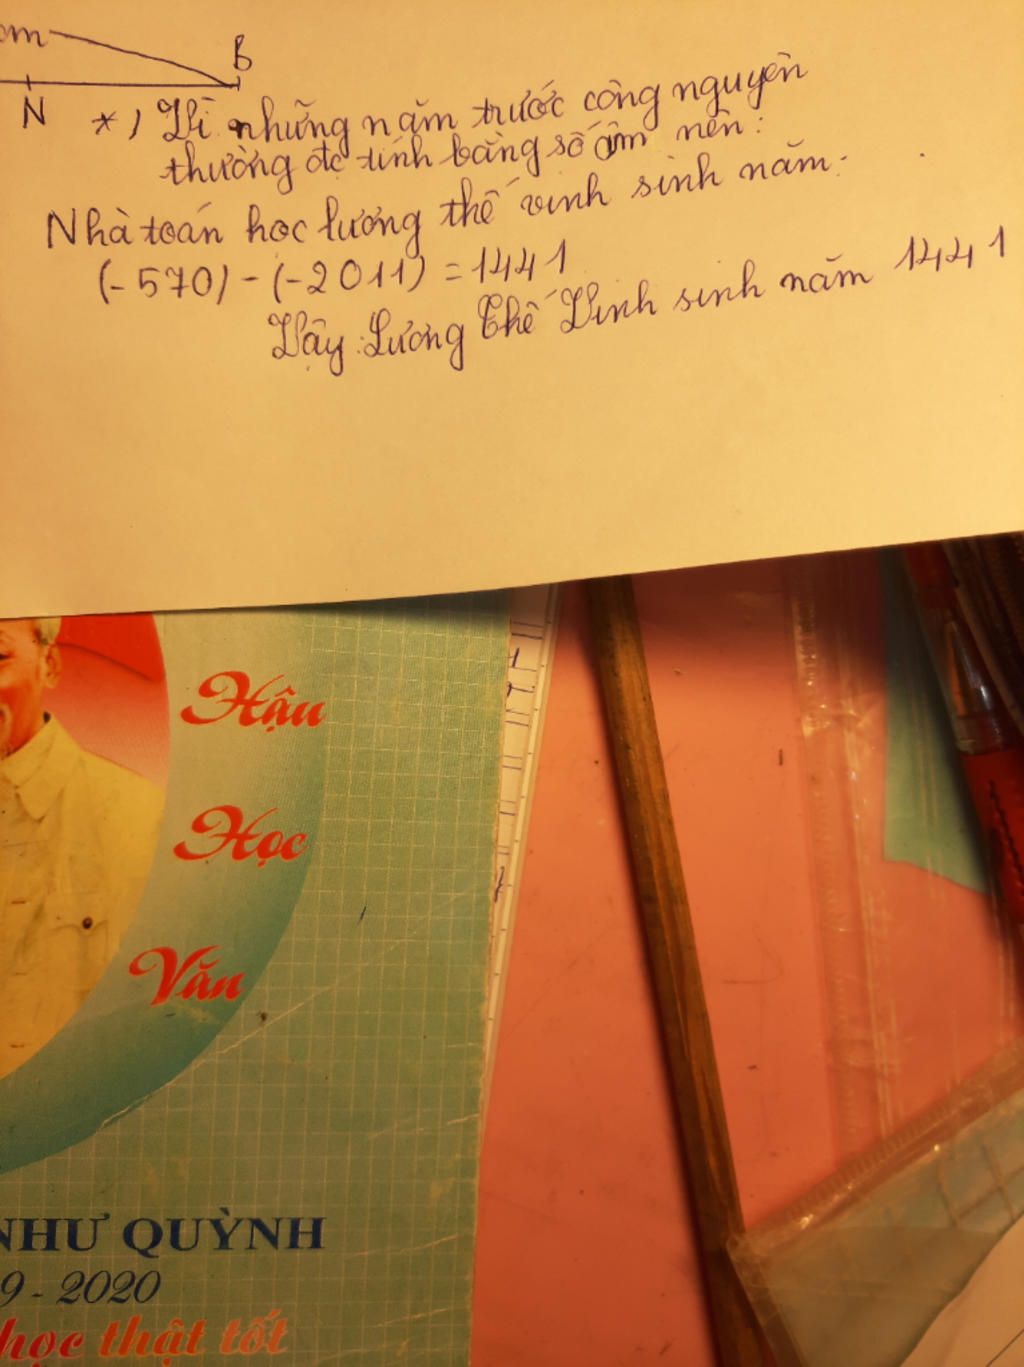 om
B
N
*) Vì những năm trước công nguyên
thường đc tính bằng số âm nên:
Nhà toán học lương thế vinh sinh năm:
(-570) - (-2011) = 1441
Vậy: Lương Thế Vinh sinh năm 1441
Hậu
Học
Văn
NHƯ QUỲNH
9 - 2020
học thật tốt